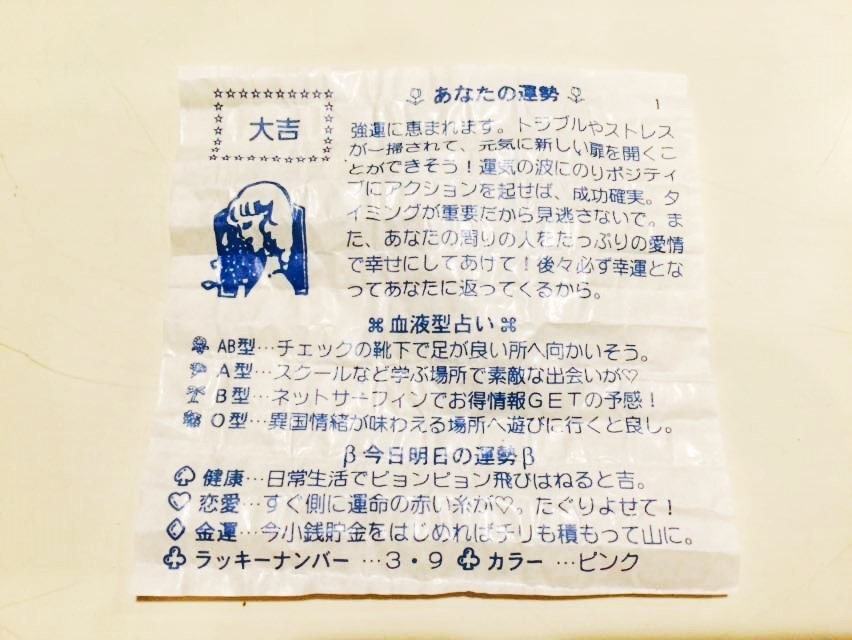 あなたの運勢
1
大吉
強運に恵まれます。トラブルやストレス
が一掃されて、元気に新しい扉を開くこ
とができそう！運気の波にのりポジティ
ブにアクションを起せば、成功確実。タ
イミングが重要だから見逃さないで。ま
た、あなたの周りの人をたっぷりの愛情
で幸せにしてあげて！後々必ず幸運とな
ってあなたに返ってくるから。
⌘血液型占い⌘
AB型…チェックの靴下で足が良い所へ向かいそう。
A型…スクールなど学ぶ場所で素敵な出会いが♡
B型…ネットサーフィンでお得情報GETの予感！
O型…異国情緒が味わえる場所へ遊びに行くと良し。
β今日明日の運勢β
♤健康…日常生活でピョンピョン飛びはねると吉。
♡恋愛…すぐ側に運命の赤い糸が♡。たぐりよせて！
♢金運…今小銭貯金をはじめればチリも積もって山に。
♧ラッキーナンバー…3・9 ♧カラー…ピンク